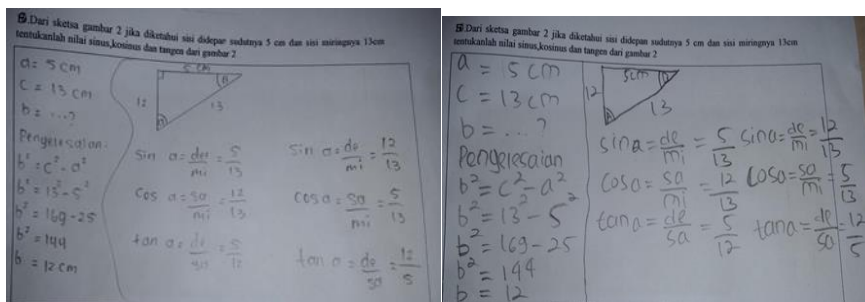 5.Dari sketsa gambar 2 jika diketahui sisi didepan sudutnya 5 cm dan sisi miringnya 13cm
tentukanlah nilai sinus,kosinus dan tangen dari gambar 2
a = 5 cm
c = 13 cm
b = ...?
Pengelesaian:
b² = c² - a²
b² = 13² - 5²
b² = 169 - 25
b² = 144
b = 12 cm
5 cm
12
13
sin a = de/mi = 5/13
cos a = sa/mi = 12/13
tan a = de/sa = 5/12
sin a = de/mi = 12/13
cos a = sa/mi = 5/13
tan a = de/sa = 12/5
5.Dari sketsa gambar 2 jika diketahui sisi didepan sudutnya 5 cm dan sisi miringnya 13cm
tentukanlah nilai sinus,kosinus dan tangen dari gambar 2
a = 5 cm
c = 13 cm
b = ... ?
Pengelesaian
b² = c² - a²
b² = 13² - 5²
b² = 169 - 25
b² = 144
b = 12
5cm
12
13
sin a = de/mi = 5/13 sin a = de/mi = 12/13
cos a = sa/mi = 12/13 cos a = sa/mi = 5/13
tan a = de/sa = 5/12 tan a = de/sa = 12/5